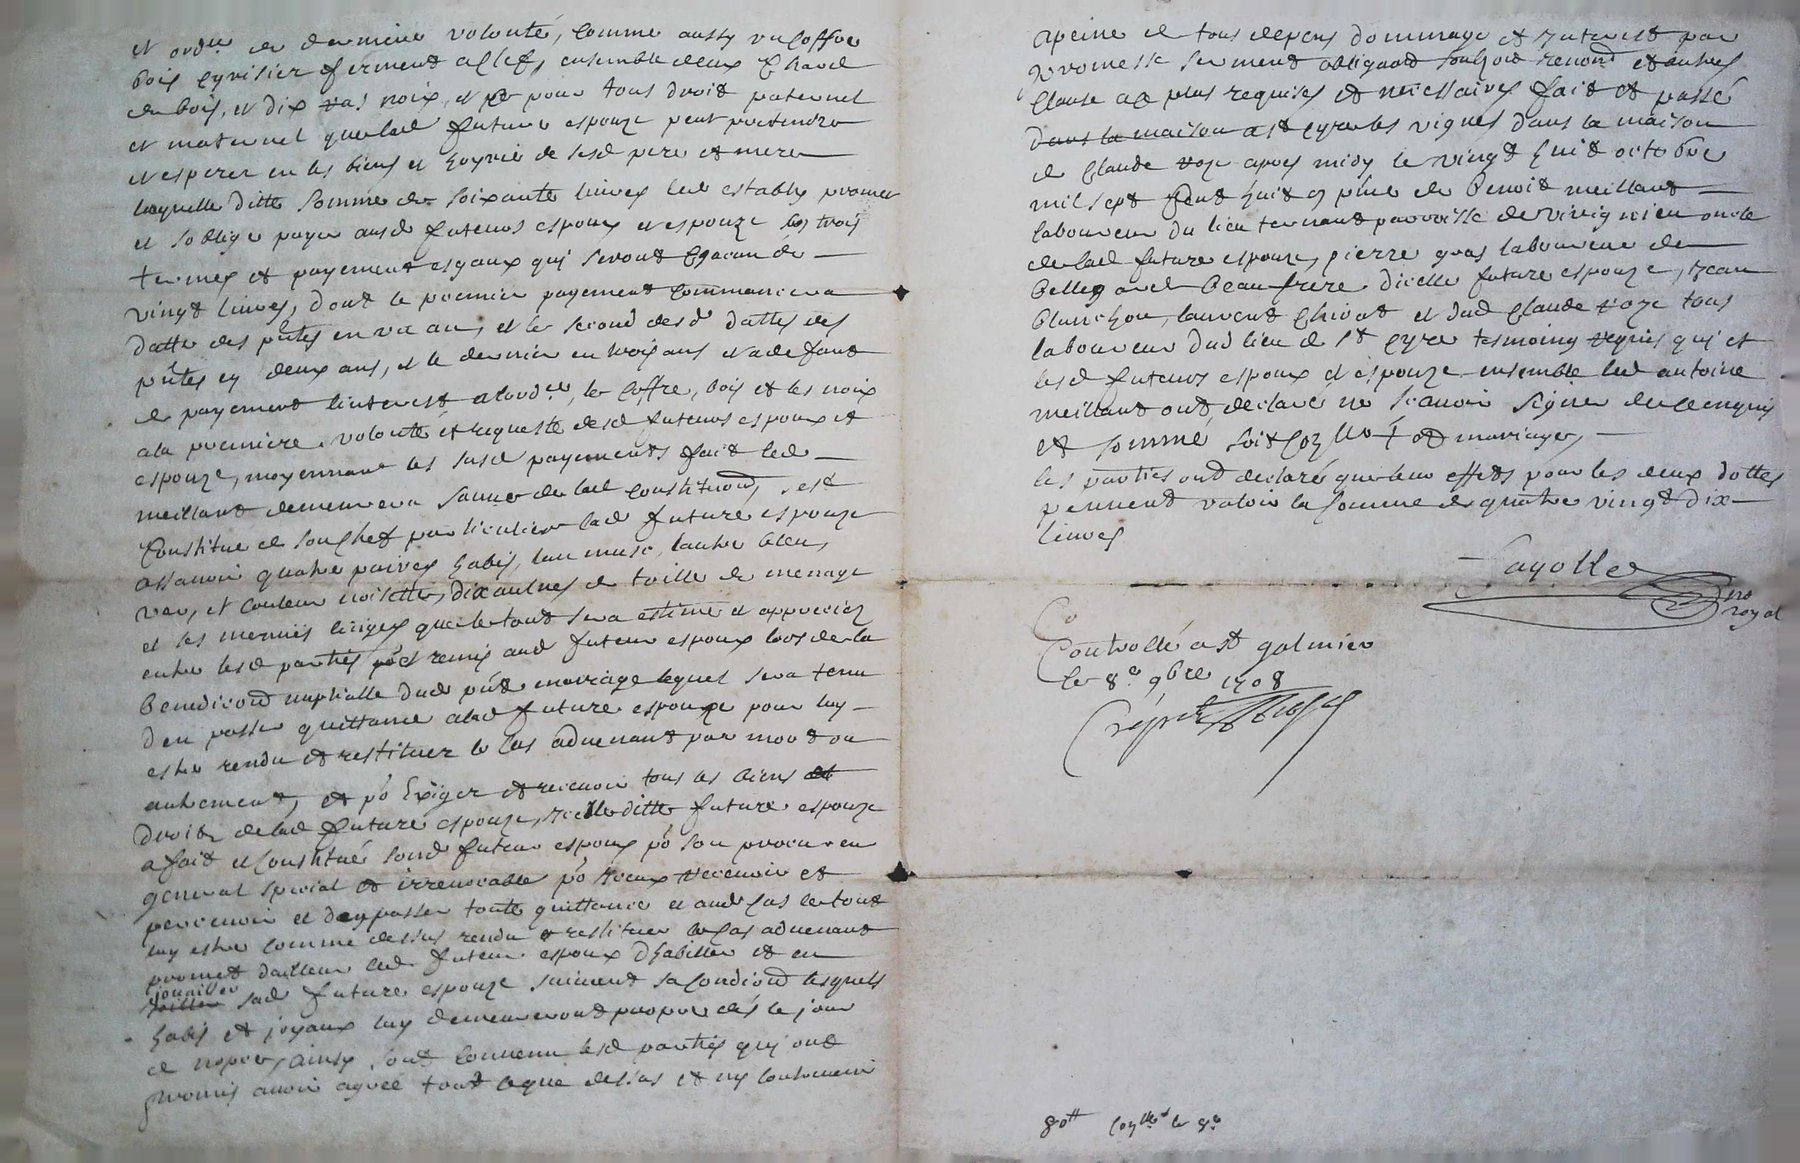 et ord.re de derniere volonté, comme aussy un coffre
bois cyrisier ferment a clef, ensemble deux
de bois, et dix ras noix, et ce pour tous droit paternel
et maternel que lad future espouze peut pretendre
et esperer en les biens et hoyrie de sesd pere et mere
laquelle ditte somme de soixante livres led establis promet
et soblige payer ausd futeurs espoux et espouze en trois
termes et payements esgaux quj seront chacun de
vingt livres, dont le premier payement commencera
datte des pntes en un an, et le second desd dattes des
pntes en deux ans, et le dernier en trois ans et a defaut
de payement linterest a lord.re, le coffre, bois et les noix
a la premiere volonté et requeste desd futeurs espoux et
espouze, moyennant les susd payements fait led
meillant demeurera de lad constitution, sest
constitue de son chef particulier lad future espouze
assavoir quatre paires habis, lun musc, lautre bleu,
ver, et couleur noisette, dix aulnes de toille de menage
et les menus linges que le tout sera estimé et apprecié
entre lesd parties et remis aud futeur espoux lors de la
benediction nuptialle dud pnt mariage lequel sera tenu
den passer quittance a lad future espouze pour luy
estre rendu et restituer le cas advenant par mort ou
autrement, et po exiger et recevoir tous les biens et
droits de lad future espouze, icelle ditte future espouze
a fait et constitué sond futeur espoux po son procureur
general special et irrevocable po iceux recevoir et
percevoir et den passer toute quittance et aud cas le tout
luy estre comme dessus rendu et restituer le cas advenant
promet dailleur led futeur espoux dhabiller et en
jouailler sad future espouze suivant sa condition lesquels
habis et joyaux luy demeureront propre dés le jour
de nopces, ainsy sont convenu lesd parties quj ont
promis avoir agreé tout ceque dessus et ny contrevenir
apeine de tous depens dommage et interest par
promesse serment obligaon soubzon renond et autres
clause ac plus requises et necessaires fait et passé
dans la maison a st cyre les vignes dans la maison
de Claude roze apres midy le vingt huit octobre
mil sept cent huit en pnce de Benoit meillant
laboureur du lieu tenant parroisse de virignieu oncle
de lad future espouze, pierre gras laboureur de
Bellegarde beau frere dicelle future espouze, jean
Blanchon, laurent Chirat et dud Claude roze tous
laboureur dud lieu de st cyre tesmoins requis quj et
lesd futeurs espoux et espouze ensemble led antoine
meillant ont declaré ne scavoir signer de ce enquis
et sommé soit coll.lé et mariages,
les parties ont declaré que leur effets pour les deux dottes
peuvent valoir la somme de quatre vingt dix
livres
Fayolle
no
royal
Controllé a st galmier
le 8.e 9bre 1708
80tt le 8.e